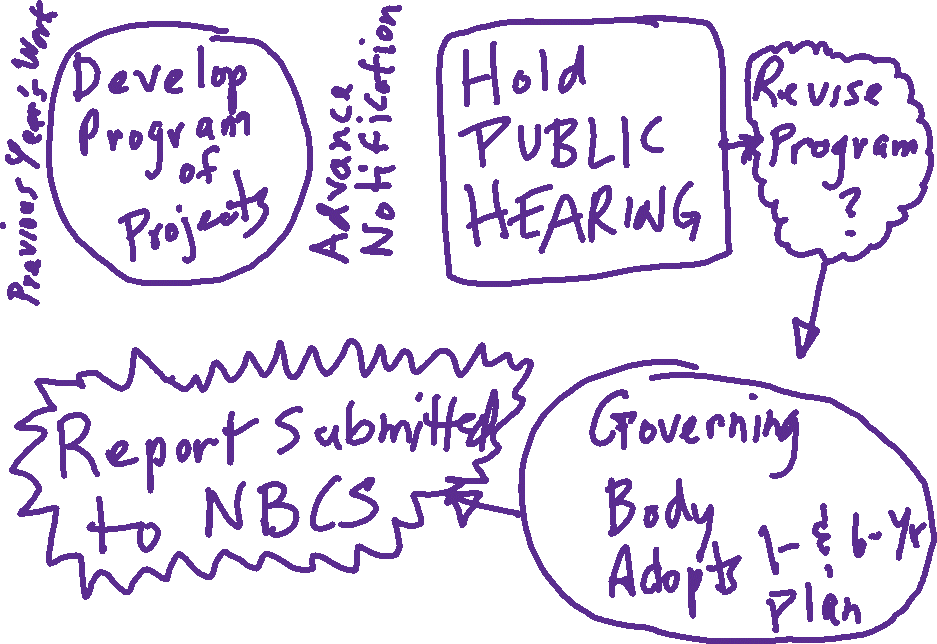 Previous Year's Work
Develop
Program
of
Projects
Advance
Notification
Hold
PUBLIC
HEARING
Revise
Program
?
Governing
Body
Adopts 1- & 6-Yr
Plan
Report Submitted
to NBCS